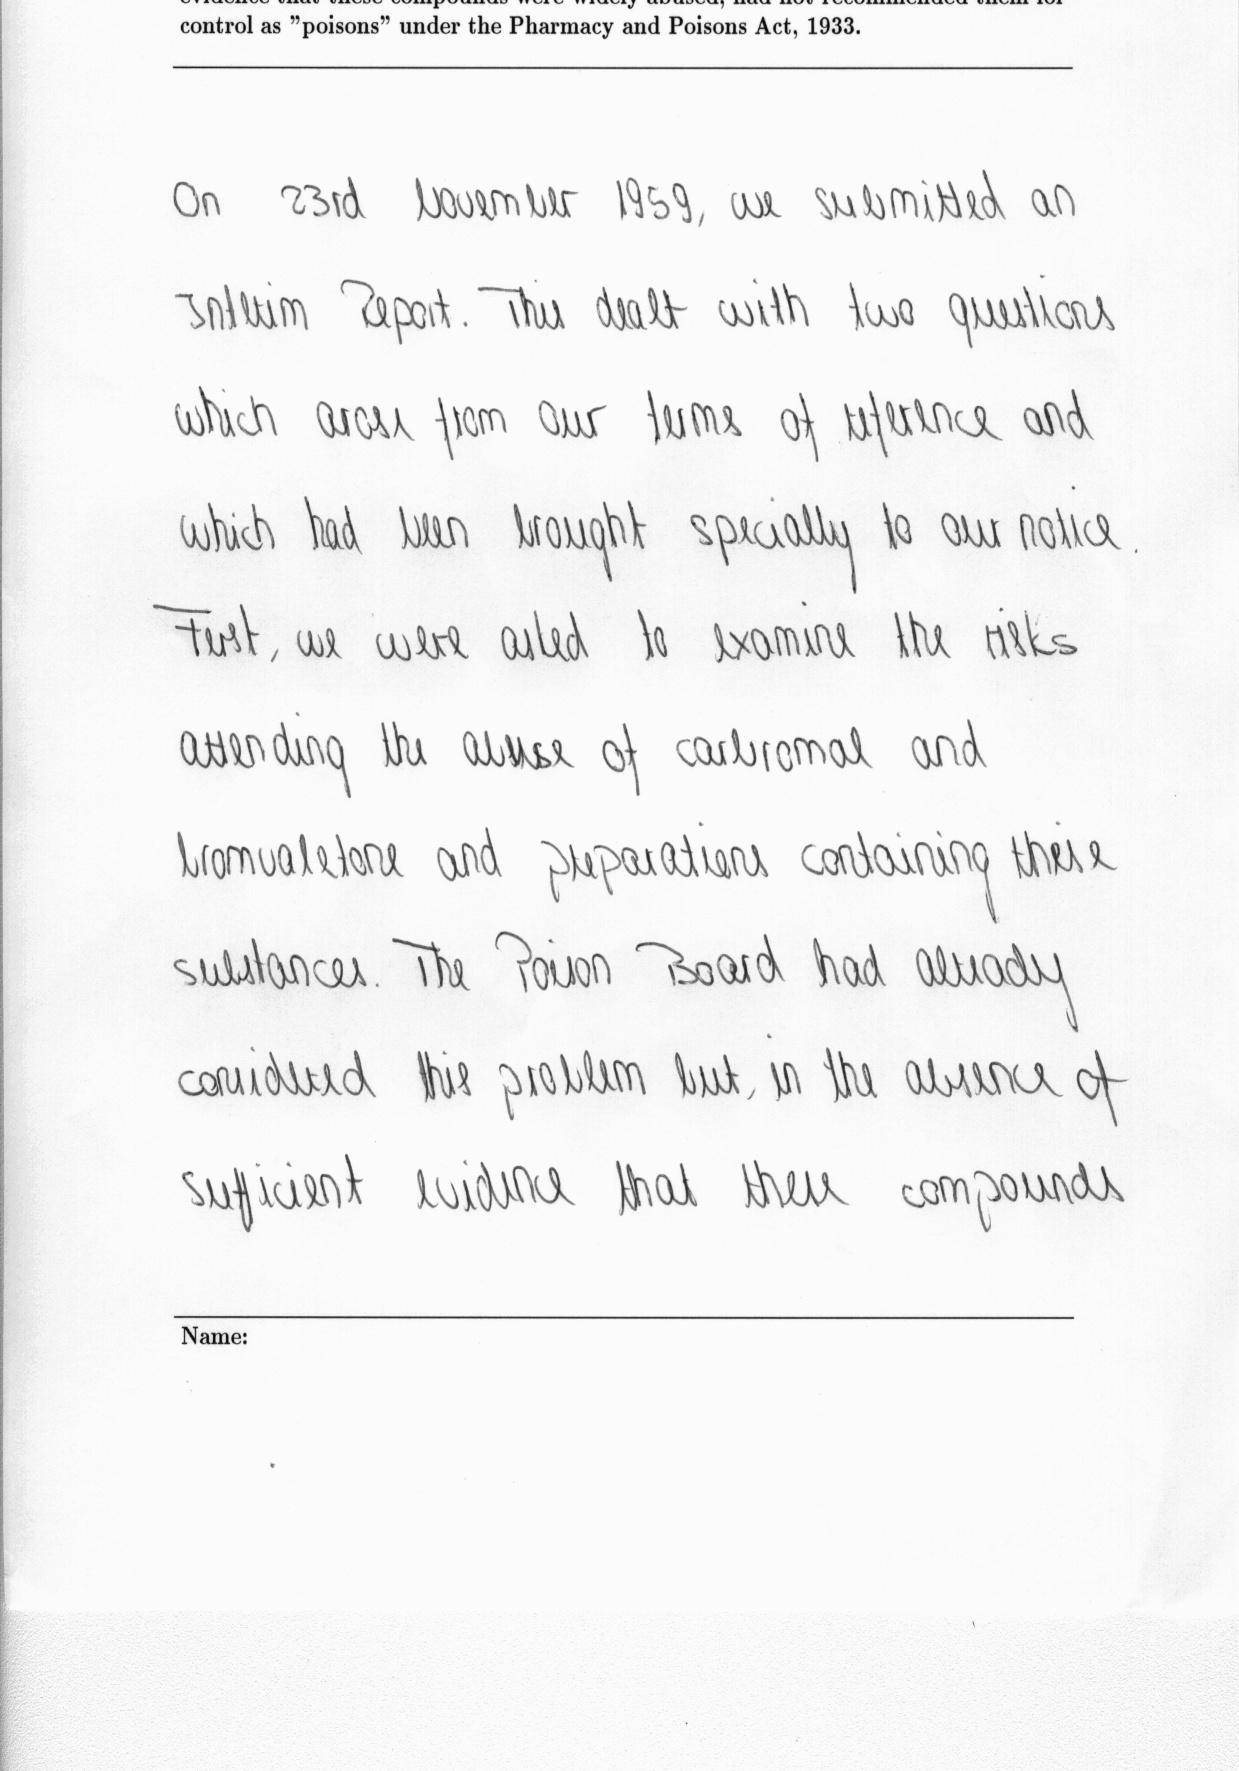 evidence that these compounds were widely abused, had not recommended them for
control as "poisons" under the Pharmacy and Poisons Act, 1933.
On 23rd November 1959, we submitted an
Interim Report. This dealt with two questions
which arose from our terms of reference and
which had been brought specially to our notice.
First, we were asked to examine the risks
attending the abuse of carbromal and
bromvaletone and preparations containing these
substances. The Poison Board had already
considered this problem but, in the absence of
sufficient evidence that these compounds
Name: